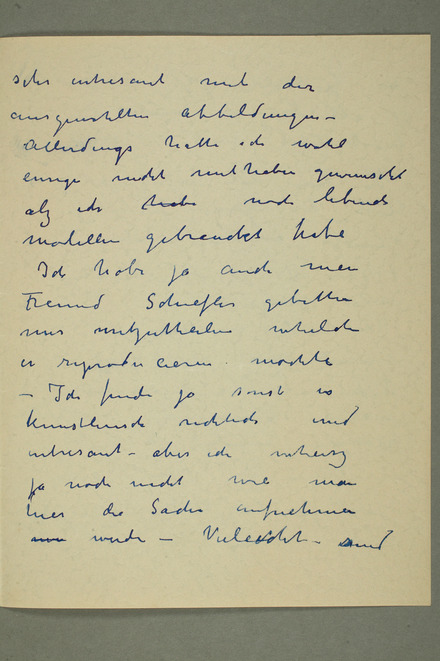 sehr intresant mit der
ausgewählten Abbildungen –
Allerdings hatte ich wohl
einige nicht mithaben gewunscht
alz ich habe noch lebende
modellen gebrauckt habe
Ich habe ja auch mein
Freund Schiefler gebetten
mir mitzutheilen welche
er reproducieren möchte
– Ich finde ja sonst es
kunstlerisch und
intresant – aber ich
ja noch nicht wie man
hier die Sache aufnehmen
wurde – Vieleicht – sind